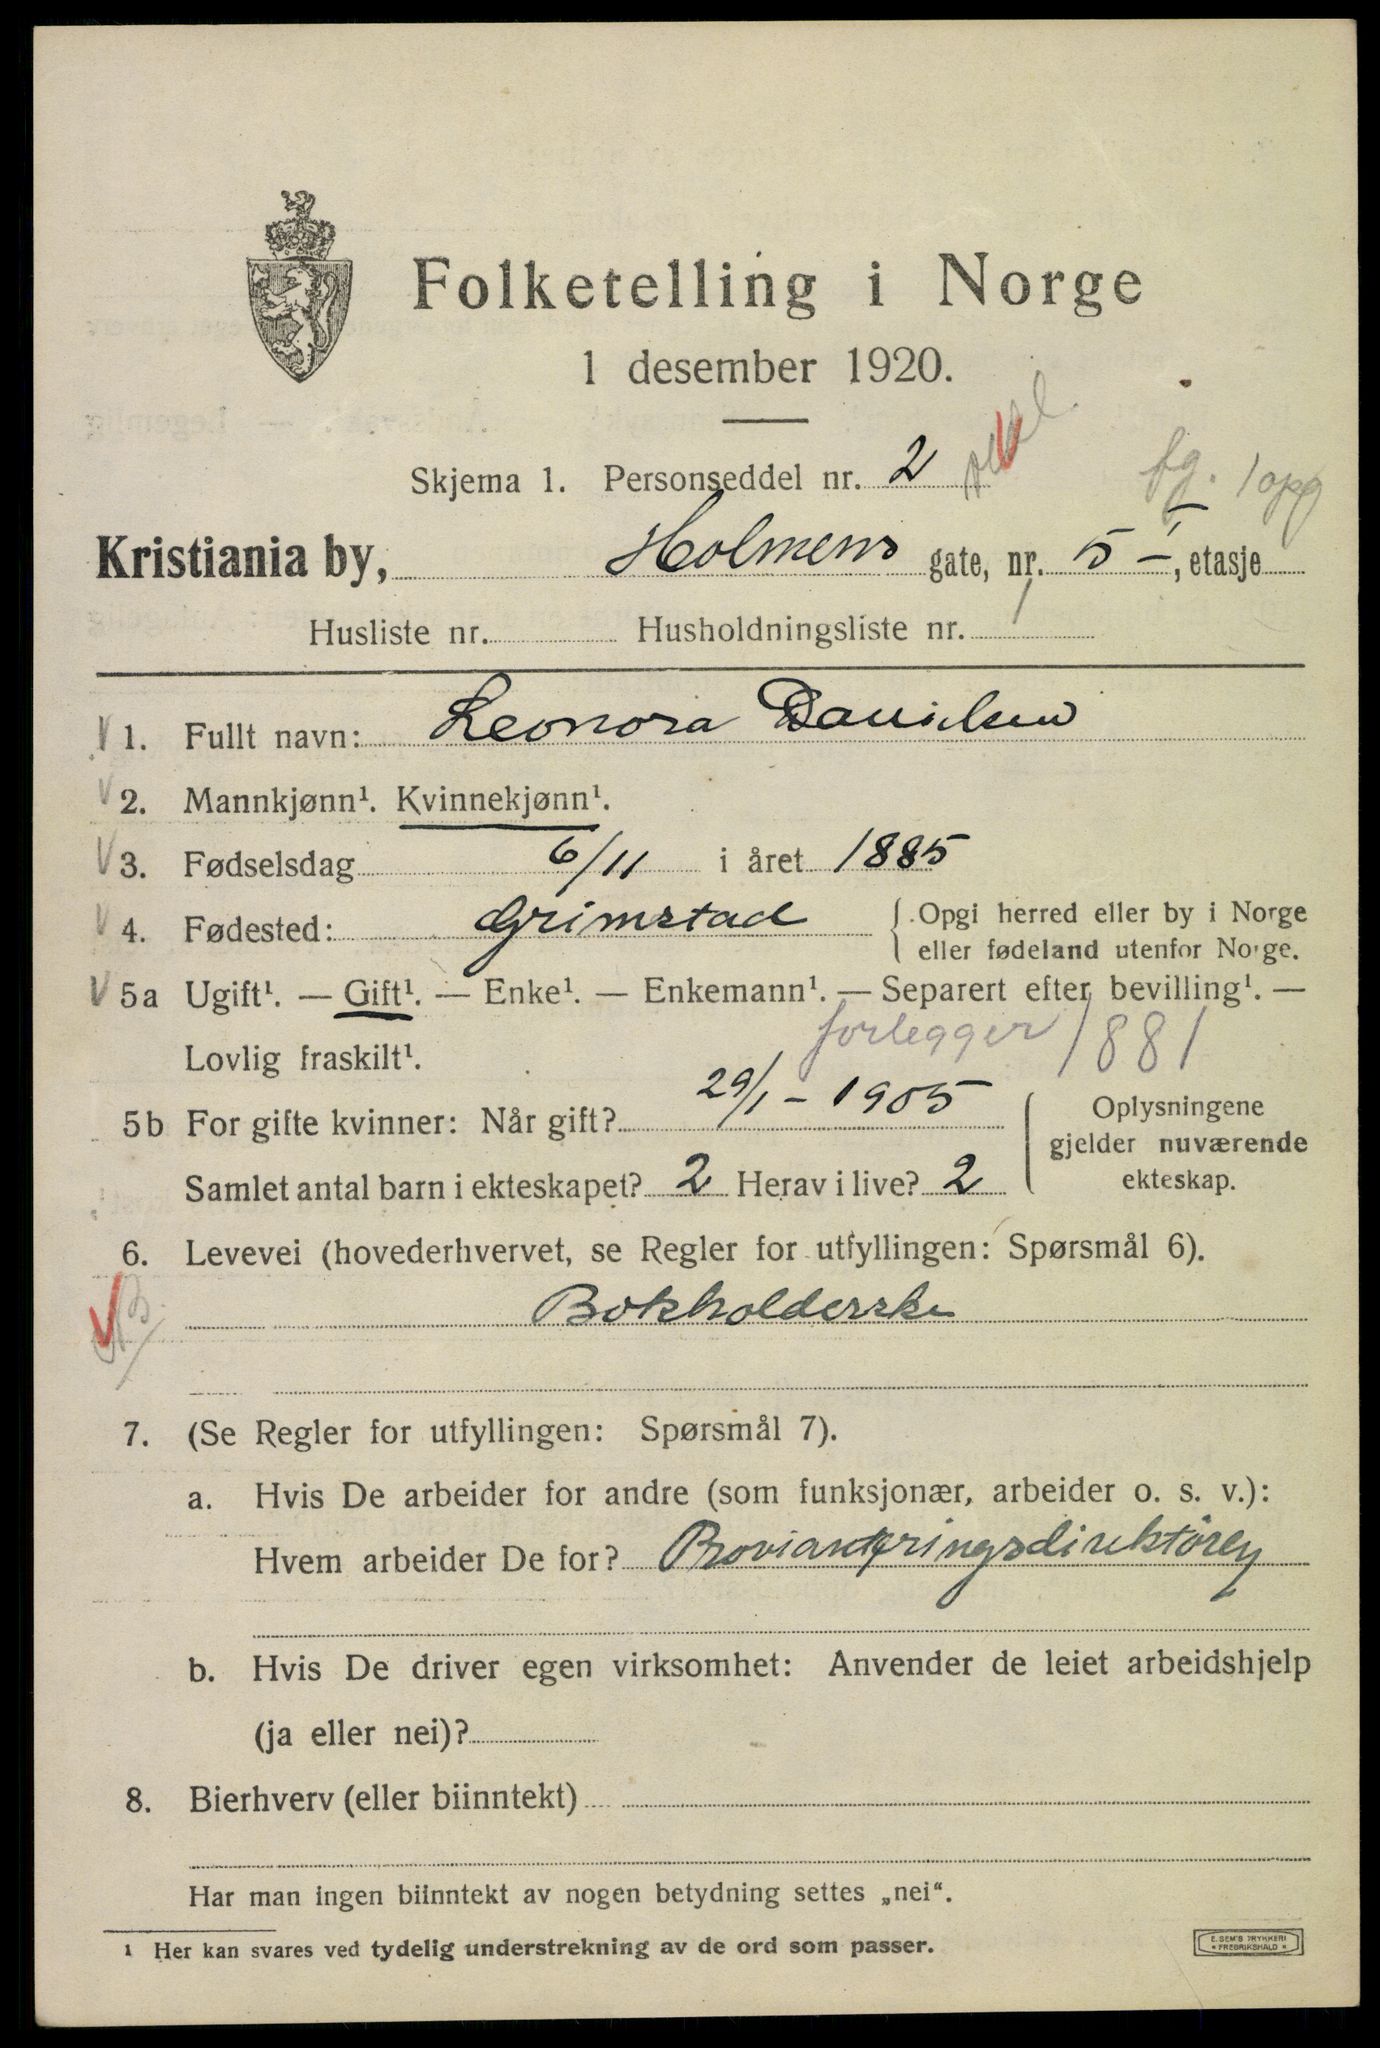 Folketelling i Norge
1 desember 1920.
Skjema 1. Personseddel nr. 2
fg. 1 opg
Kristiania by, Holmens gate, nr. 5 I, etasje
Husliste nr. Husholdningsliste nr. 1
1. Fullt navn: Leonora Danielsen
2. Mannkjønn¹. Kvinnekjønn¹.
3. Fødselsdag 6/11 i året 1885
4. Fødested: Grimstad { Opgi herred eller by i Norge
eller fødeland utenfor Norge.
5a Ugift¹. — Gift¹. — Enke¹. — Enkemann¹. — Separert efter bevilling¹. —
Lovlig fraskilt¹. forlegger 1881
5b For gifte kvinner: Når gift? 29/1 - 1905 { Oplysningene
gjelder nuværende
Samlet antal barn i ekteskapet? 2 Herav i live? 2 ekteskap.
6. Levevei (hovederhvervet, se Regler for utfyllingen: Spørsmål 6).
Bokholderske
7. (Se Regler for utfyllingen: Spørsmål 7).
a. Hvis De arbeider for andre (som funksjonær, arbeider o. s. v.):
Hvem arbeider De for? Provianteringsdirektören
b. Hvis De driver egen virksomhet: Anvender de leiet arbeidshjelp
(ja eller nei)?
8. Bierhverv (eller biinntekt)
Har man ingen biinntekt av nogen betydning settes „nei“.
¹ Her kan svares ved tydelig understrekning av de ord som passer.
E. SEM'S TRYKKERI
* FREDRIKSHALD *